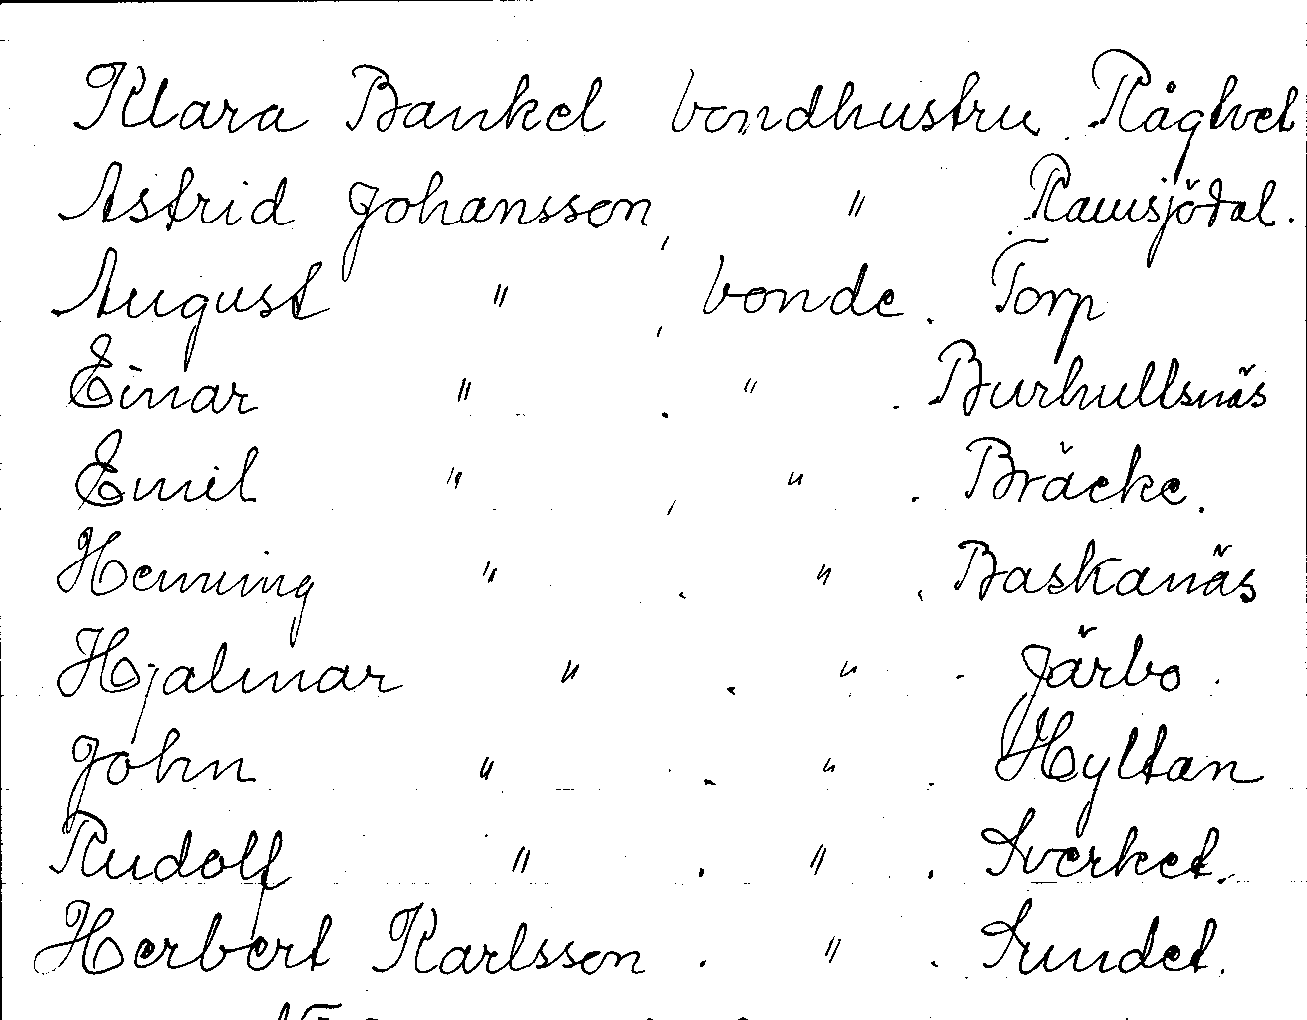 Klara Bankel bondhustru. Rågtvet
Astrid Johansson, " . Ramsjödal.
August " , bonde . Torp
Einar " . " . Burhullsnäs
Emil " , " . Bräcke.
Henning " . " . Baskanäs
Hjalmar " . " . Järbo .
John " . " . Hyltan
Rudolf " . " . Sverket.
Herbert Karlsson . " . Sundet.